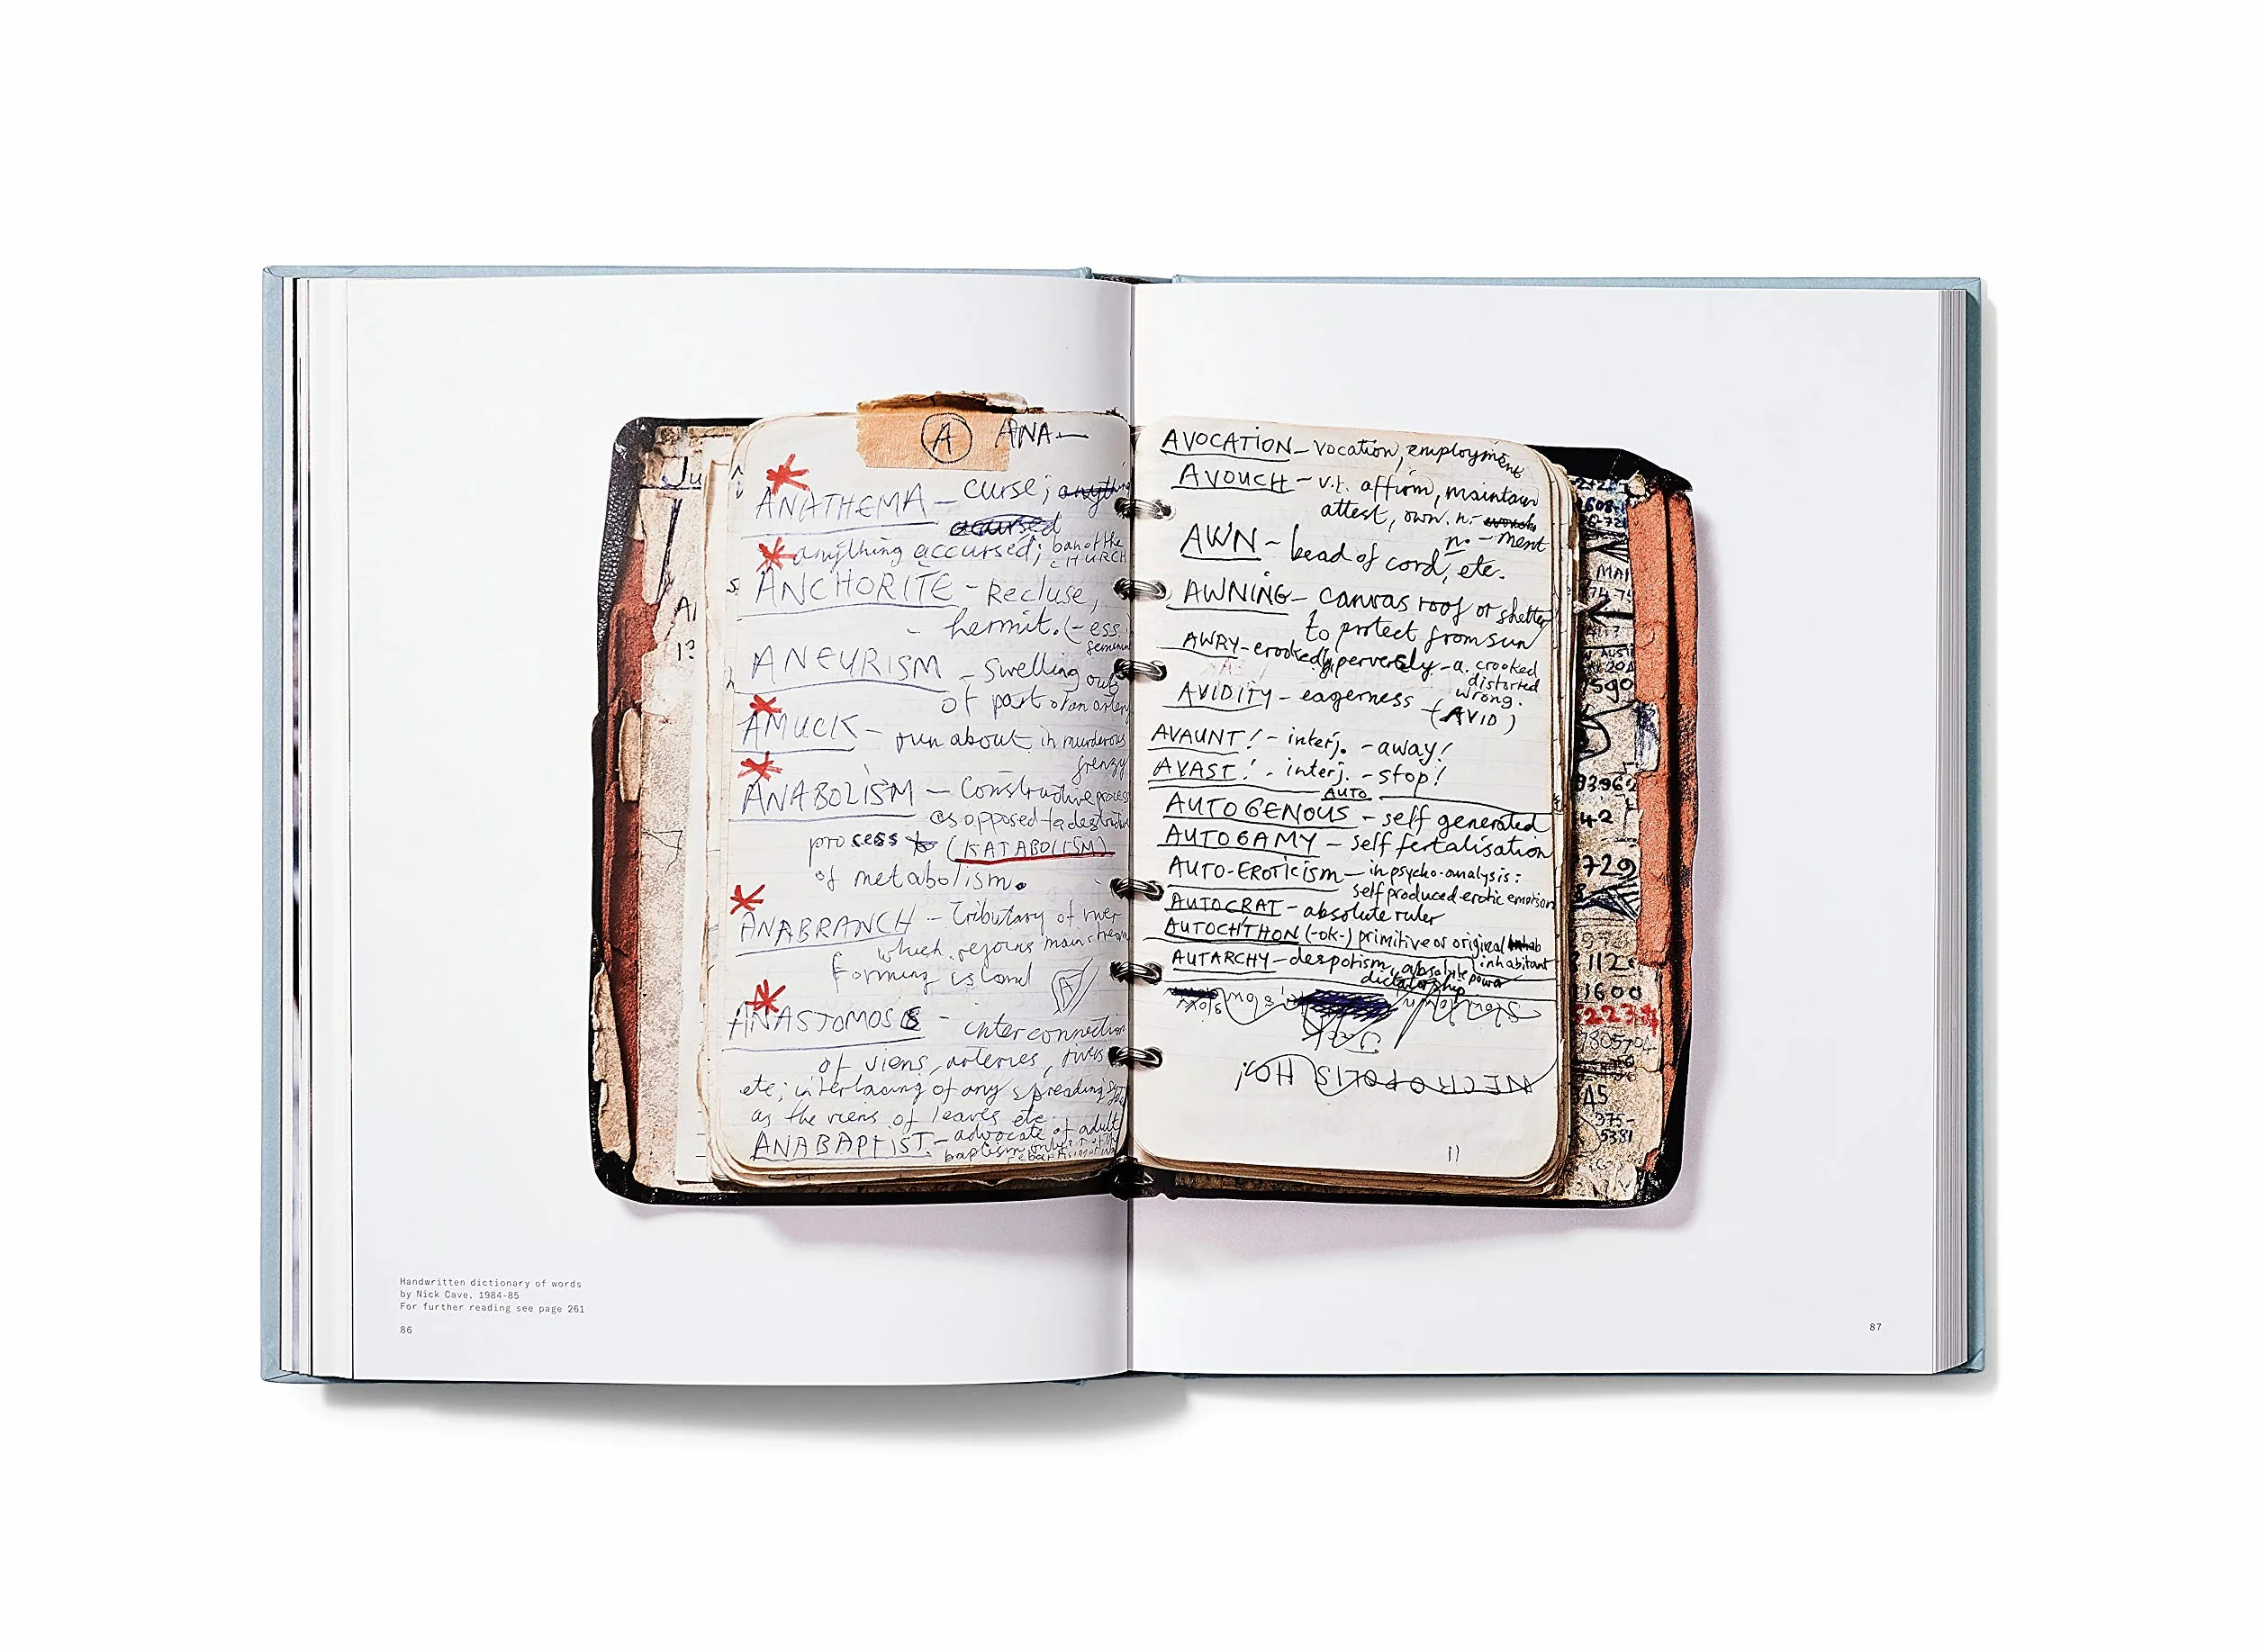 A ANA—
ANATHEMA — curse; anything
accursed
anything accursed; ban of the
CHURCH
ANCHORITE - Recluse,
- hermit. (-ess.
ANEURISM - swelling out
of part of an artery
AMUCK - run about in murderous
frenzy
ANABOLISM — Constructive process
as opposed to destructive
process to (KATABOLISM)
of metabolism.
ANABRANCH - Tributary of river
which rejoins main stream
forming island A
ANASTOMOSIS - interconnection
of viens, arteries, rivers
etc; interlacing of any spreading
as the viens of leaves etc
ANABAPTIST - advocate of adult
baptism
AVOCATION - vocation, employment
AVOUCH - v.t. affirm, maintain
attest, own. n. - avouch
n. - ment
AWN - bead of cord, etc.
AWNING - canvas roof or shelter
to protect from sun
AWRY - crookedly, perversely - a. crooked
distorted
wrong.
AVIDITY - eagerness
(AVID)
AVAUNT! - interj. - away!
AVAST! - interj. - stop!
AUTO
AUTOGENOUS - self generated
AUTOGAMY - self fertalisation
AUTO-EROTICISM — in psycho-analysis:
self produced erotic emotion
AUTOCRAT - absolute ruler
AUTOCHTHON (-ok-) primitive or original inhab
inhabitant
AUTARCHY - despotism, absolute power
dictatorship
NECROPOLIS HO!
11
Handwritten dictionary of words
by Nick Cave, 1984-85
For further reading see page 261
86
87